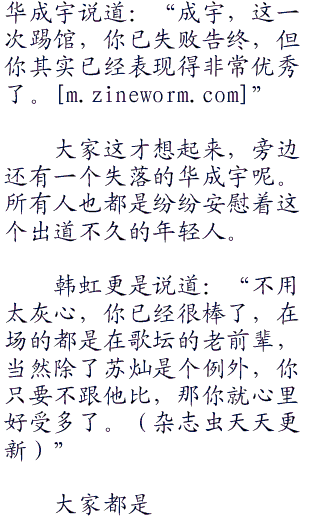 华成宇说道：“成宇，这一
次踢馆，你已失败告终，但
你其实已经表现得非常优秀
了。[m.zineworm.com]”
大家这才想起来，旁边
还有一个失落的华成宇呢。
所有人也都是纷纷安慰着这
个出道不久的年轻人。
韩虹更是说道：“不用
太灰心，你已经很棒了，在
场的都是在歌坛的老前辈，
当然除了苏灿是个例外，你
只要不跟他比，那你就心里
好受多了。（杂志虫天天更
新）”
大家都是